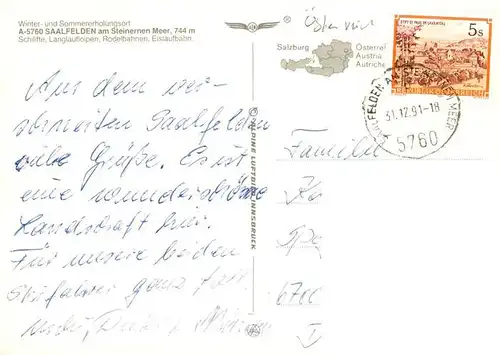 Winter- und Sommererholungsort
A-5760 SAALFELDEN am Steinernen Meer, 744 m
Schilifte, Langlaufloipen, Rodelbahnen, Eislaufbahn.
Aus dem ver-
schneiten Saalfelden
viele Grüße. Es ist
eine wunderschöne
Landschaft hier.
Für unsere beiden
Skifahrer ganz toll
ALPINE LUFTBILD, INNSBRUCK
Salzburg
Österrei
Austria
Autriche
STIFT ST. PAUL IM LAVANTTAL
5s
REPUBLIK ÖSTERREICH
SAALFELDEN AM STEINERNEN MEER
31.12.91-18
5760
Familie
6700